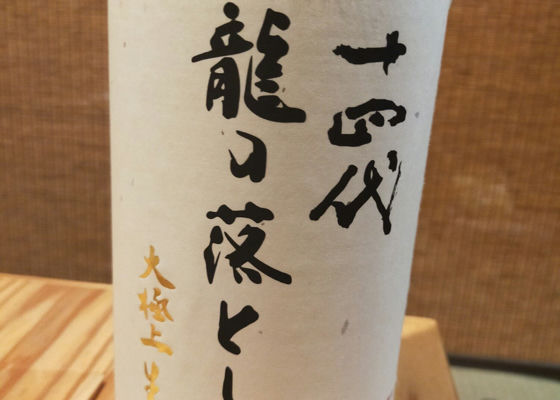 十四代
龍の落とし
大極上 生